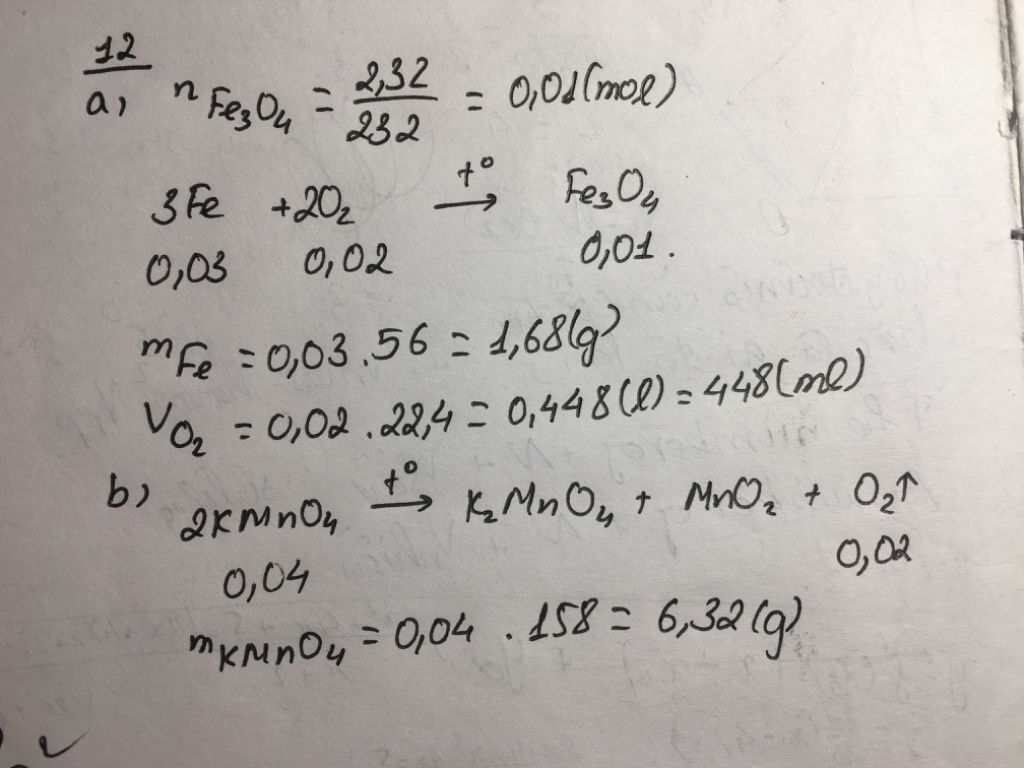 12
a, n Fe3O4 = 2,32/232 = 0,01(mol)
3Fe +2O2 t° → Fe3O4
0,03 0,02 0,01.
mFe = 0,03.56 = 1,68(g)
VO2 = 0,02.22,4 = 0,448(l) = 448(ml)
b, 2KMnO4 t° → K2MnO4 + MnO2 + O2↑
0,04 0,02
mKMnO4 = 0,04 . 158 = 6,32(g)